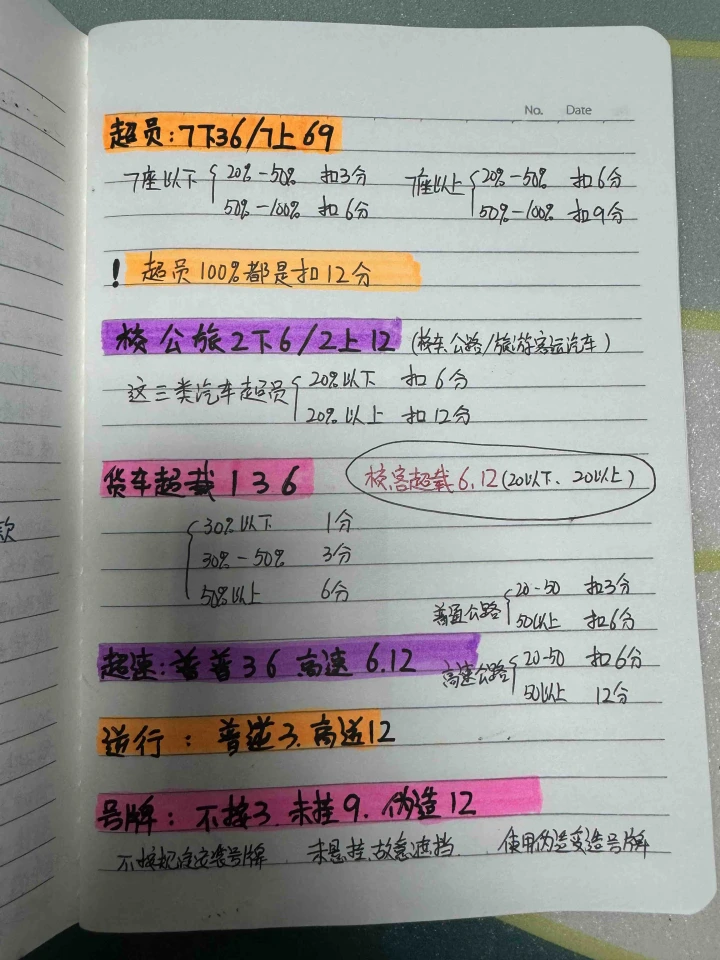 No. Date
超员:7下36/7上69
7座以下 20%-50% 扣3分
50%-100% 扣6分
7座以上 20%-50% 扣6分
50%-100% 扣9分
! 超员100%都是扣12分
校公旅2下6/2上12 (校车公路/旅游客运汽车)
这三类汽车超员 20%以下 扣6分
20%以上 扣12分
货车超载136
校客超载6.12(20以下、20以上)
30%以下 1分
30%-50% 3分
50%以上 6分
普通公路 20-50 扣3分
50以上 扣6分
超速:普普36 高速6.12
高速公路 20-50 扣6分
50以上 12分
逆行:普逆3.高逆12
号牌:不按3.未挂9.伪造12
不按规定安装号牌 未悬挂.故意遮挡. 使用伪造变造号牌
款